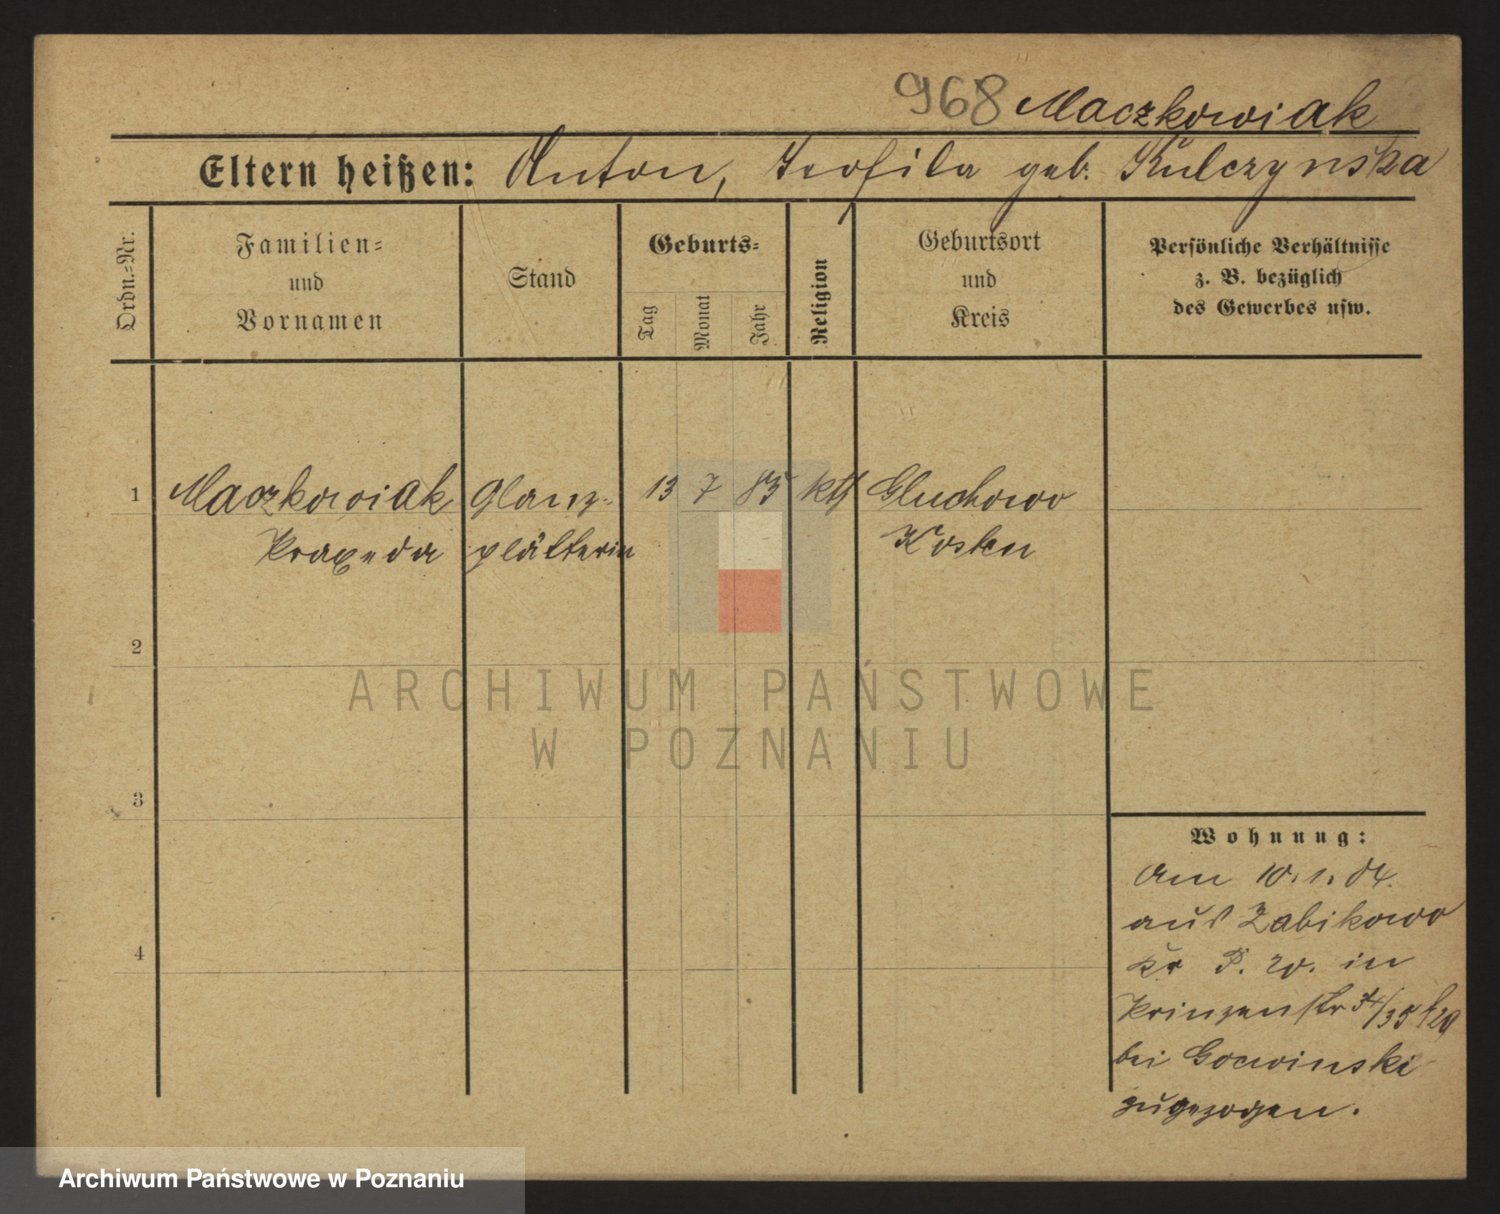 968 Maczkowiak
Eltern heißen: Anton, Teofila geb. Kulczynska
Ordn.-Nr.
Familien-
und
Vornamen
Stand
Geburts-
Tag
Monat
Jahr
Religion
Geburtsort
und
Kreis
Persönliche Verhältnisse
z. B. bezüglich
des Gewerbes usw.
1 Maczkowiak Glanz- 13 7 85 kth Gluchowo
Praxeda plätterin Kosten
2
ARCHIWUM PAŃSTWOWE
W POZNANIU
3
4
Wohnung:
Am 10. 1. 04.
aus Zabikowo
Kr P. W. in
Prinzenstr 34/35
bei Gorwinski
zugezogen.
Archiwum Państwowe w Poznaniu